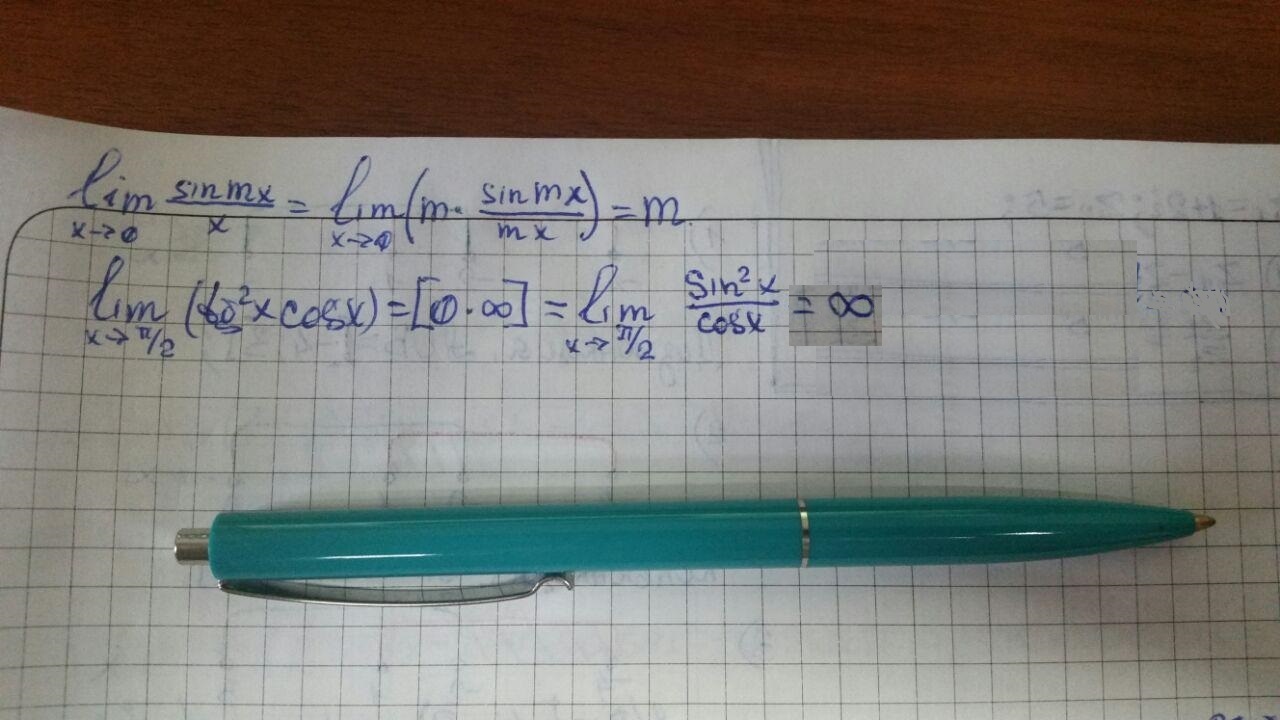 lim x→0 sin mx / x = lim x→0 (m · sin mx / mx) = m.
lim x→π/2 (tg²x cosx) = [0·∞] = lim x→π/2 sin²x / cosx = ∞